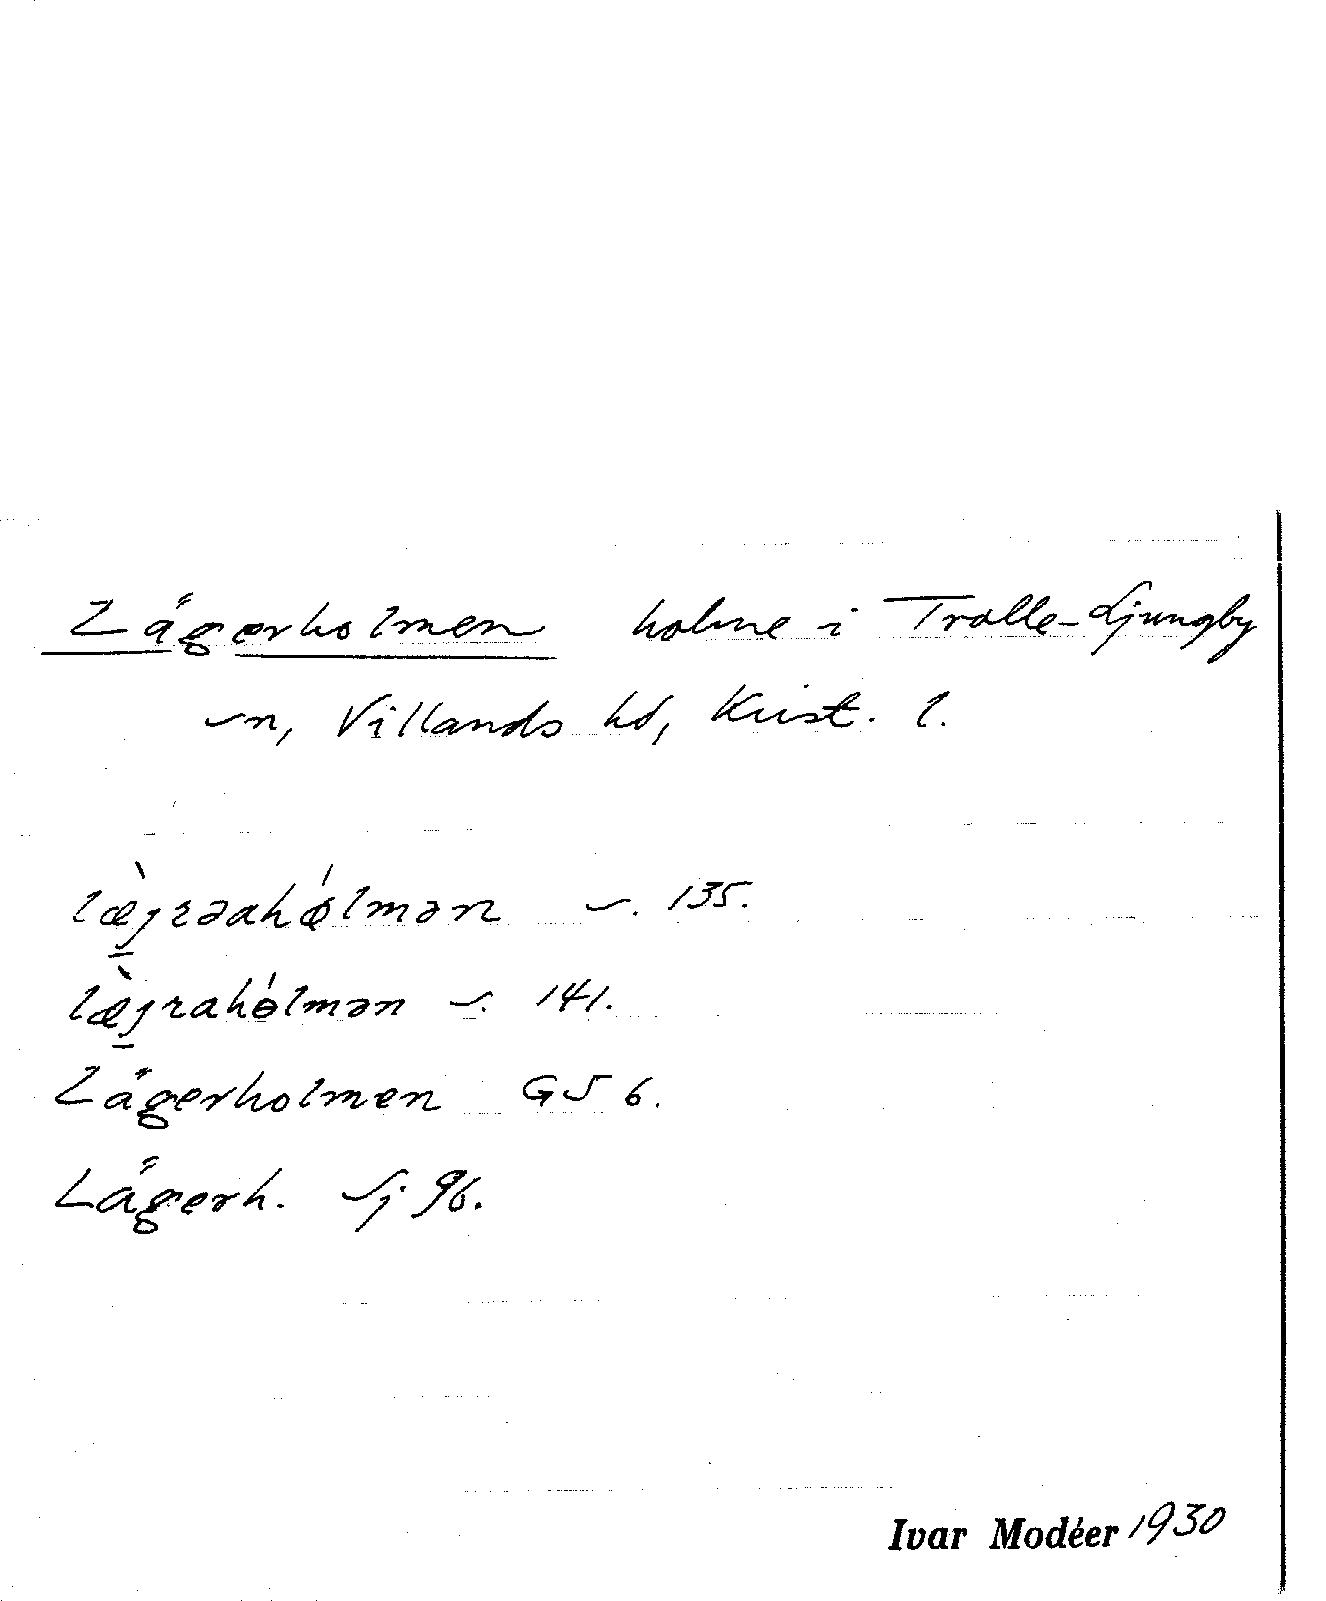 Lägerholmen holme i Trolle-Ljungby
sn, Villands hd, Krist. l.
læ̀jrəahólmən s. 135.
læ̀jrahólmən s. 141.
Lägerholmen GS 6.
Lägerh. Sj 96.
Ivar Modéer 1930